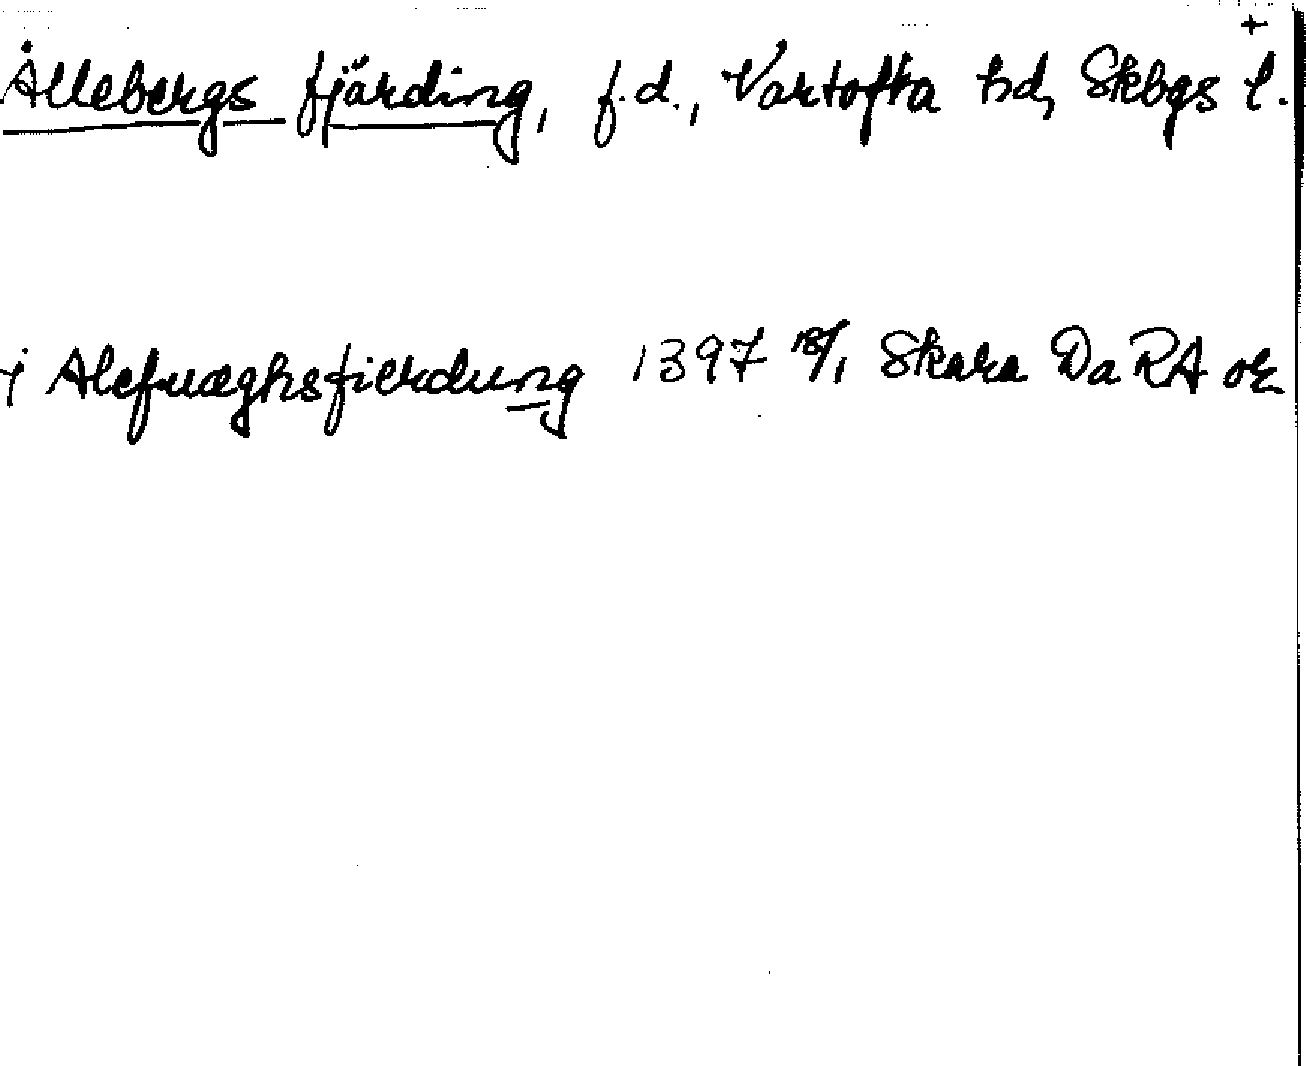 +
Ållebergs fjärding, f.d., Vartofta hd, Skbgs l.
i Alefwæghsfierdung 1397 18/1 Skara DaRA or